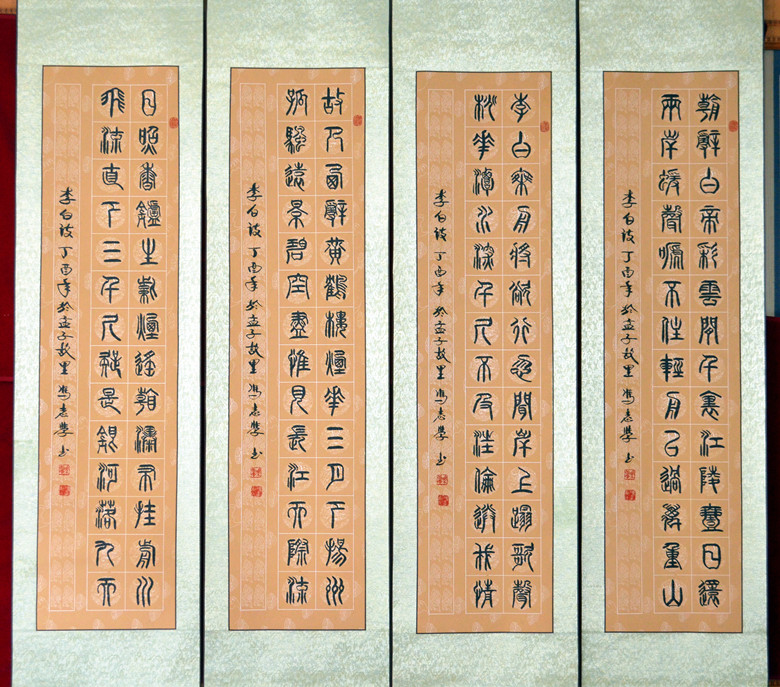 朝辭白帝彩雲間千裏江陵壹日還
兩岸猨聲嗁不住輕舟已過萬重山
李白詩 丁酉年於孟子故里 馮志學书
李白乘舟將欲行忽聞岸上蹋歌聲
桃花潭水深千尺不及汪倫送我情
李白詩 丁酉年於孟子故里 馮志學书
故人西辭黃鶴樓煙華三月下揚州
孤帆遠景碧空盡惟見長江天際流
李白詩 丁酉年於孟子故里 馮志學书
日照香鑪生紫煙遙看瀑布挂前川
飛流直下三千尺疑是銀河落九天
李白詩 丁酉年於孟子故里 馮志學书